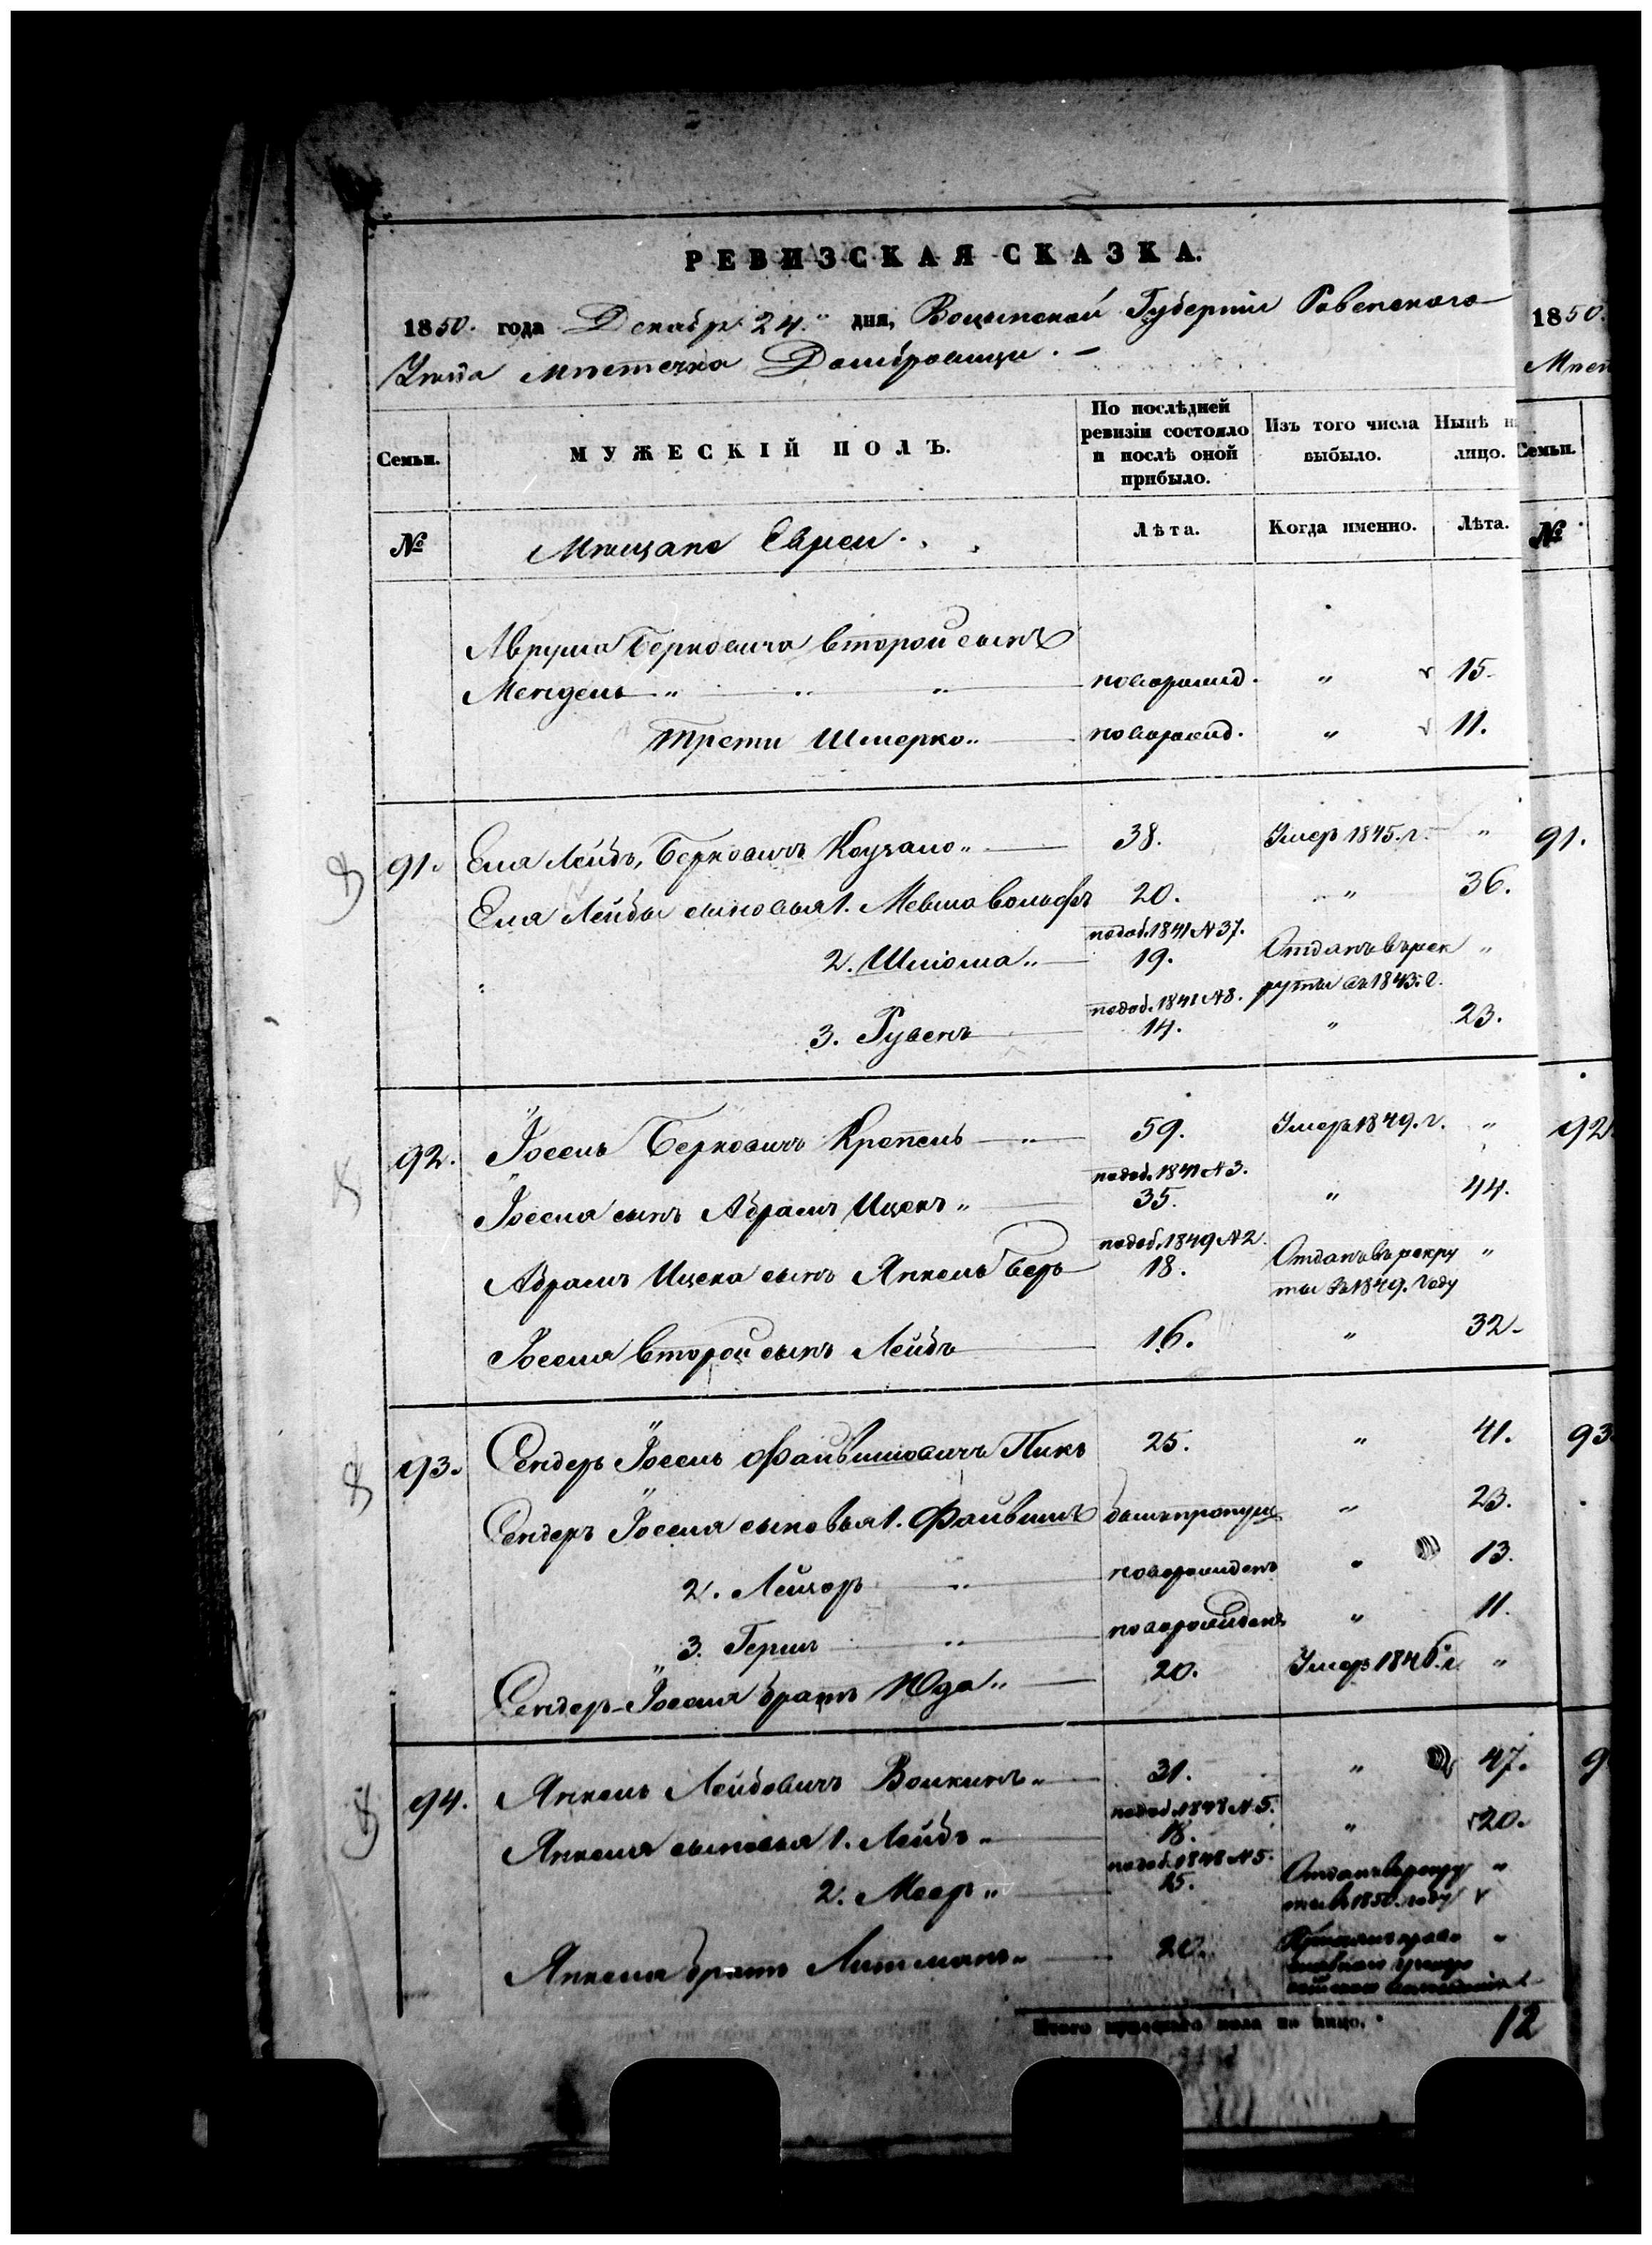 РЕВИЗСКАЯ СКАЗКА.
1850. года Декабр. 24." дня, Волынской Губернии Ровенского
Уезда местечка Домбровици. -
1850.
Семьи.
МУЖЕСКІЙ ПОЛЪ.
По послѣдней
ревизіи состояло
и послѣ оной
прибыло.
Изъ того числа
выбыло.
Нынѣ н
лицо.
Семьи.
№
Мещане Евреи.
Лѣта.
Когда именно.
Лѣта.
№
Аврума Берковича второй сынъ
Мендель " новорожд. " 15.
трети Шмерко " новорожд. " 11.
91. Еля Лейбъ Берковичъ 38. Умеръ 1845. г. " 91.
Еля Лейбы сыновья 1. Мевша Вольфъ 20. " 36.
подоб. 1841 N 37.
2. Шліома " 19. Отданъ въ рек "
руты въ 1843. г.
подоб. 1841 N 8.
3. Рувенъ 14. " 23.
92. Іосель Берковичъ Крепель " 59. Умеръ 1849. г. " 92.
подоб. 1841 N 3.
Іоселя сынъ Абрамъ Ицекъ " 35. " 44.
подоб. 1849 N 2.
Абрамъ Ицека сынъ Янкель Беръ 18. Отданъ въ рекру "
ты въ 1849. году
Іоселя второй сынъ Лейбъ 16. " 32.
93. Сендеръ Іосель Файвишовичъ Пикъ 25. " 41. 93
Сендеръ Іоселя сыновья 1. Файвишъ былъ пропущ " 23.
2. Лейзоръ " новорожденъ " 13.
3. Герш " новорожденъ " 11.
Сендеръ-Іоселя братъ Юда " 20. Умеръ 1846. г. "
94. Янкель Лейбовичъ Волкинъ " 31. " 47. 9
подоб. 1848 N 5.
Янкеля сыновья 1. Лейбъ " 18. " 20.
подоб. 1848 N 5.
2. Меер " 15. Отданъ въ рекру "
ты въ 1850. году
Янкеля братъ Литманъ " 20. "
Итого мужескаго пола на лицо. 12